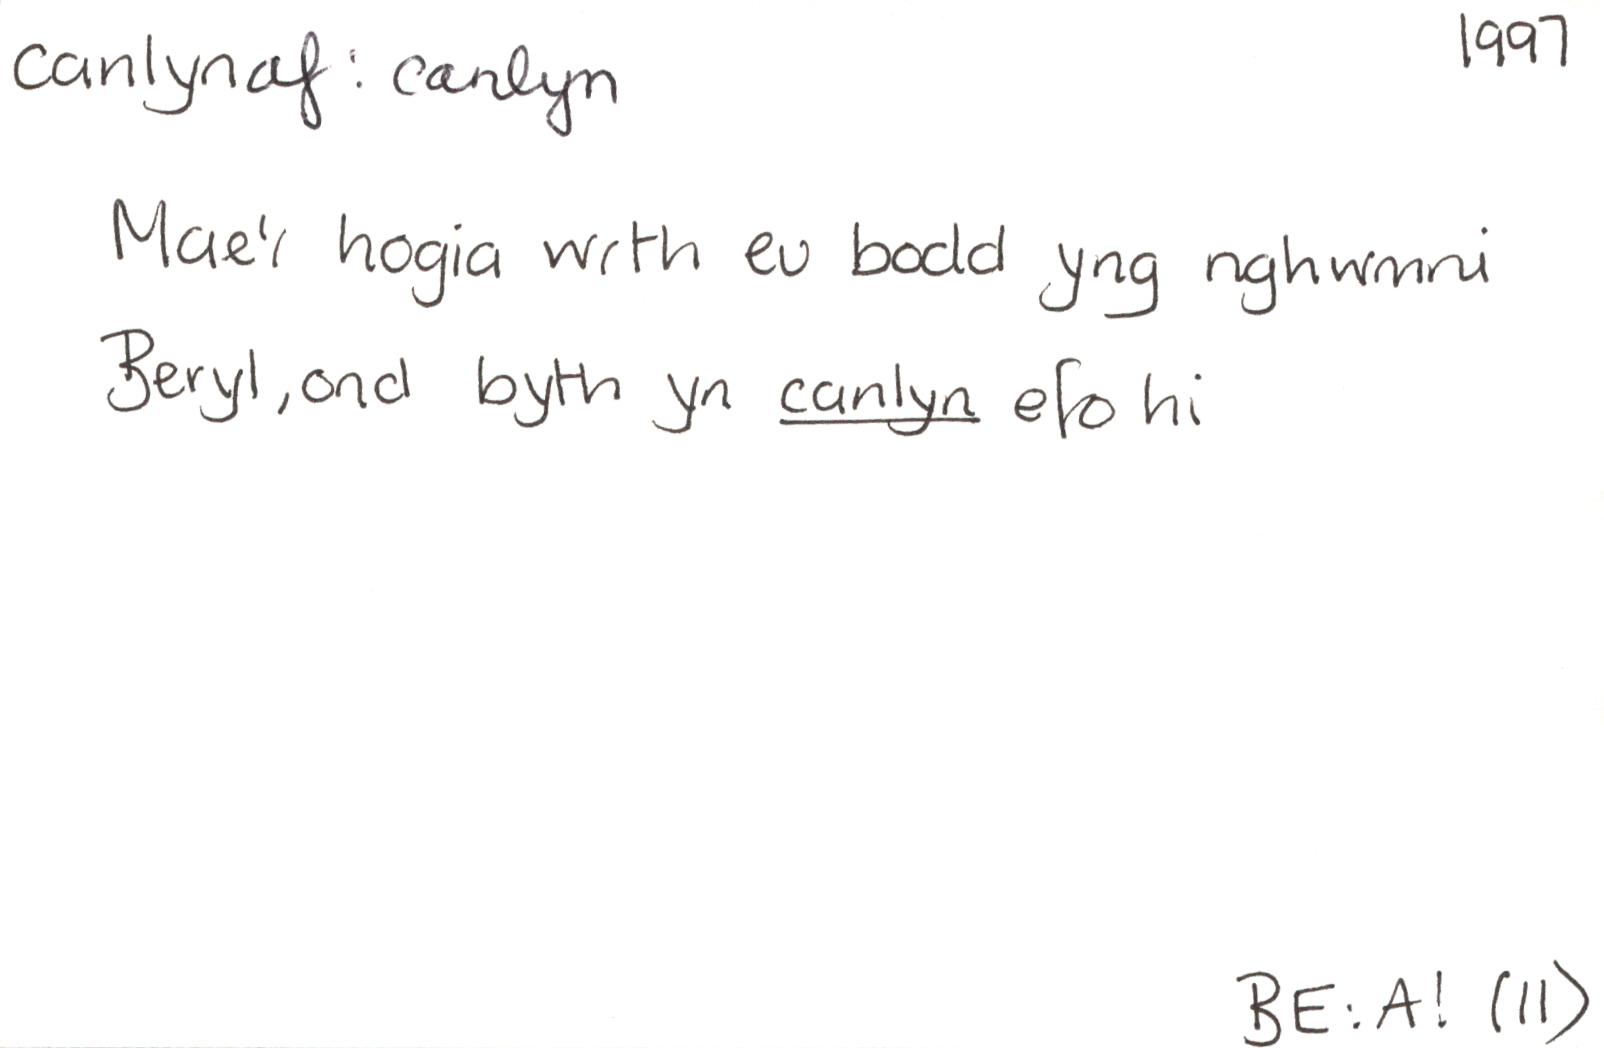 canlynaf: canlyn
1997
Mae'r hogia wrth eu bodd yng nghwmni
Beryl, ond byth yn canlyn efo hi
BE: A! (11)